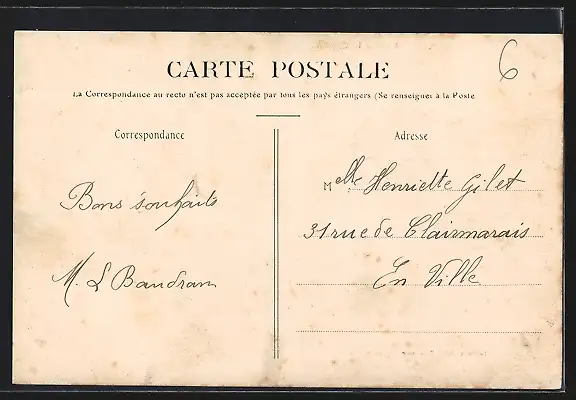 6
CARTE POSTALE
La Correspondance au recto n'est pas acceptée par tous les pays étrangers (Se renseigner à la Poste
Correspondance
Bons souhaits
M. L Baudran
Adresse
Melle Henriette Gilet
31 rue de Clairmarais
En Ville